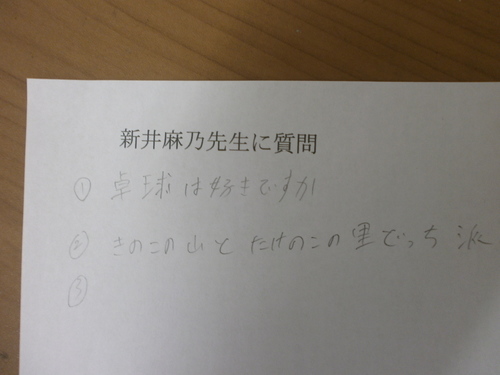 新井麻乃先生に質問
① 卓球は好きですか
② きのこの山とたけのこの里どっち派
③